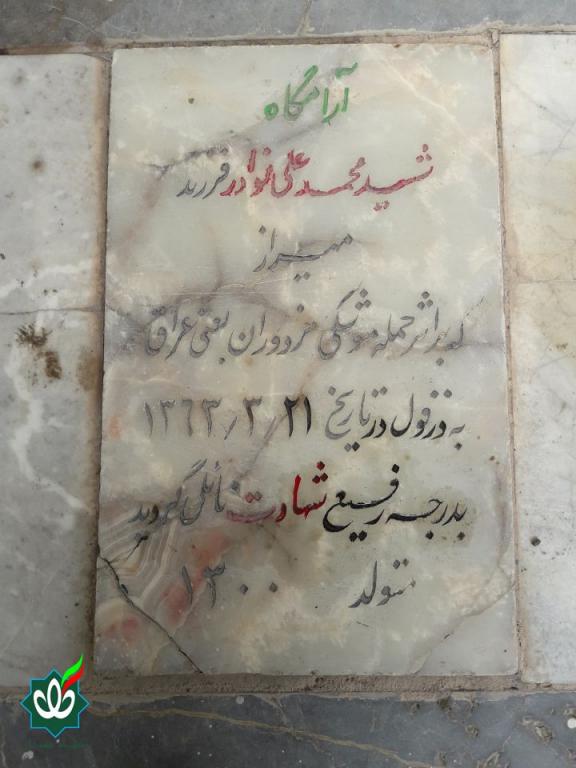 آرامگاه
شهید محمد علی نوادر فرزند
میرزا
که بر اثر حمله موشکی مزدوران بعثی عراق
به دزفول در تاریخ ۱۳۶۳/۳/۲۱
بدرجه رفیع شهادت نائل گردید
متولد ۱۳۰۰